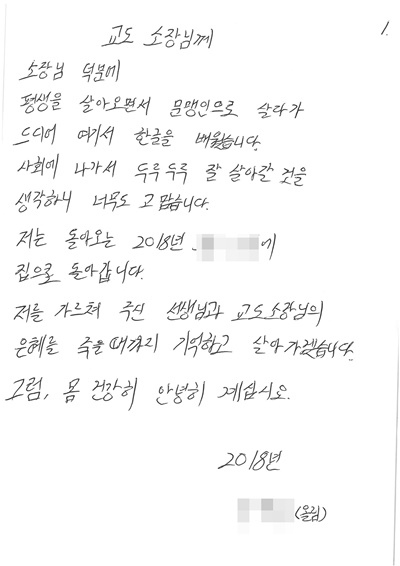 1.
교도 소장님께
소장님 덕분에
평생을 살아오면서 문맹인으로 살다가
드디어 여기서 한글을 배웠습니다.
사회에 나가서 두루두루 잘 살아갈 것을
생각하니 너무도 고맙습니다.
저는 돌아오는 2018년 에
집으로 돌아갑니다.
저를 가르쳐 주신 선생님과 교도소장님의
은혜를 죽을때까지 기억하고 살아가겠습니다.
그럼, 몸 건강히 안녕히 계십시오.
2018년
(올림)